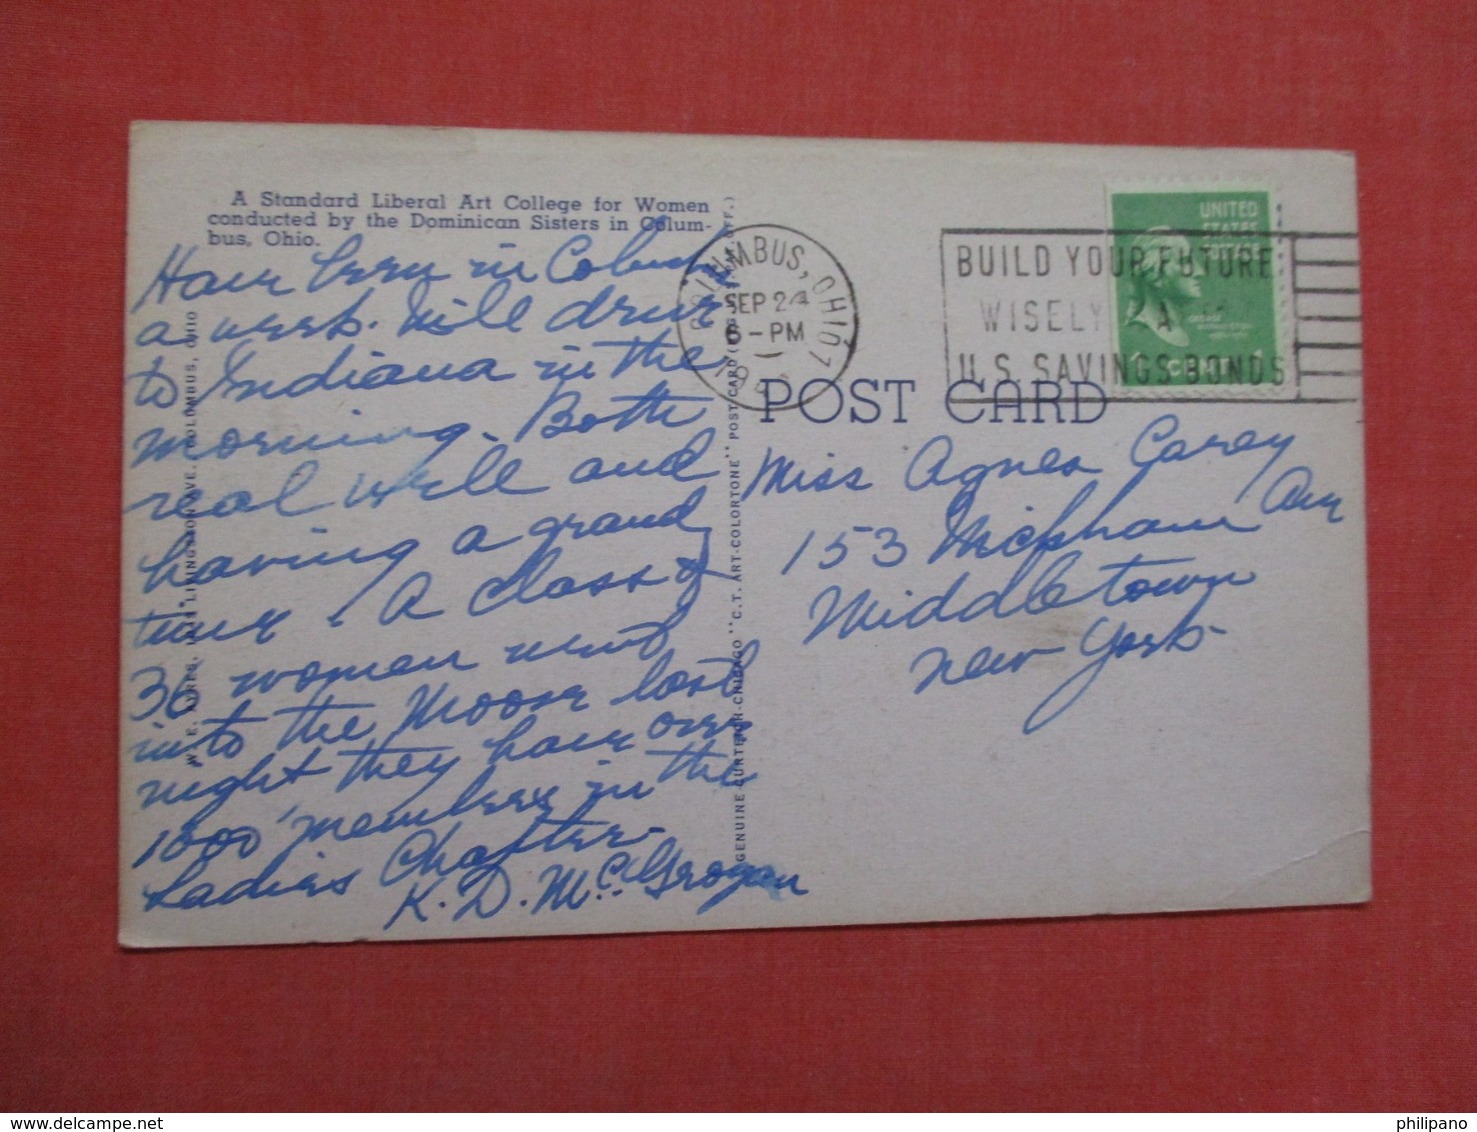 A Standard Liberal Art College for Women
conducted by the Dominican Sisters in Colum-
bus, Ohio.
Have been in Columbus
a week. Will drive
to Indiana in the
morning. Both
real well and
having a grand
time. A class of
36 women went
into the Moose last
night they have over
1800 members in the
Ladies Chapter
K. D. McGrogan
COLUMBUS, OHIO 7
SEP 24
6-PM
BUILD YOUR FUTURE
WISELY
U.S. SAVINGS BONDS
UNITED
STATES
POSTAGE
POST CARD
Miss Agnes Carey
153 Wickham Ave
Middletown
New York
GENUINE CURTEICH-CHICAGO "C.T. ART-COLORTONE" POST CARD
AVE. COLUMBUS, OHIO
philipano